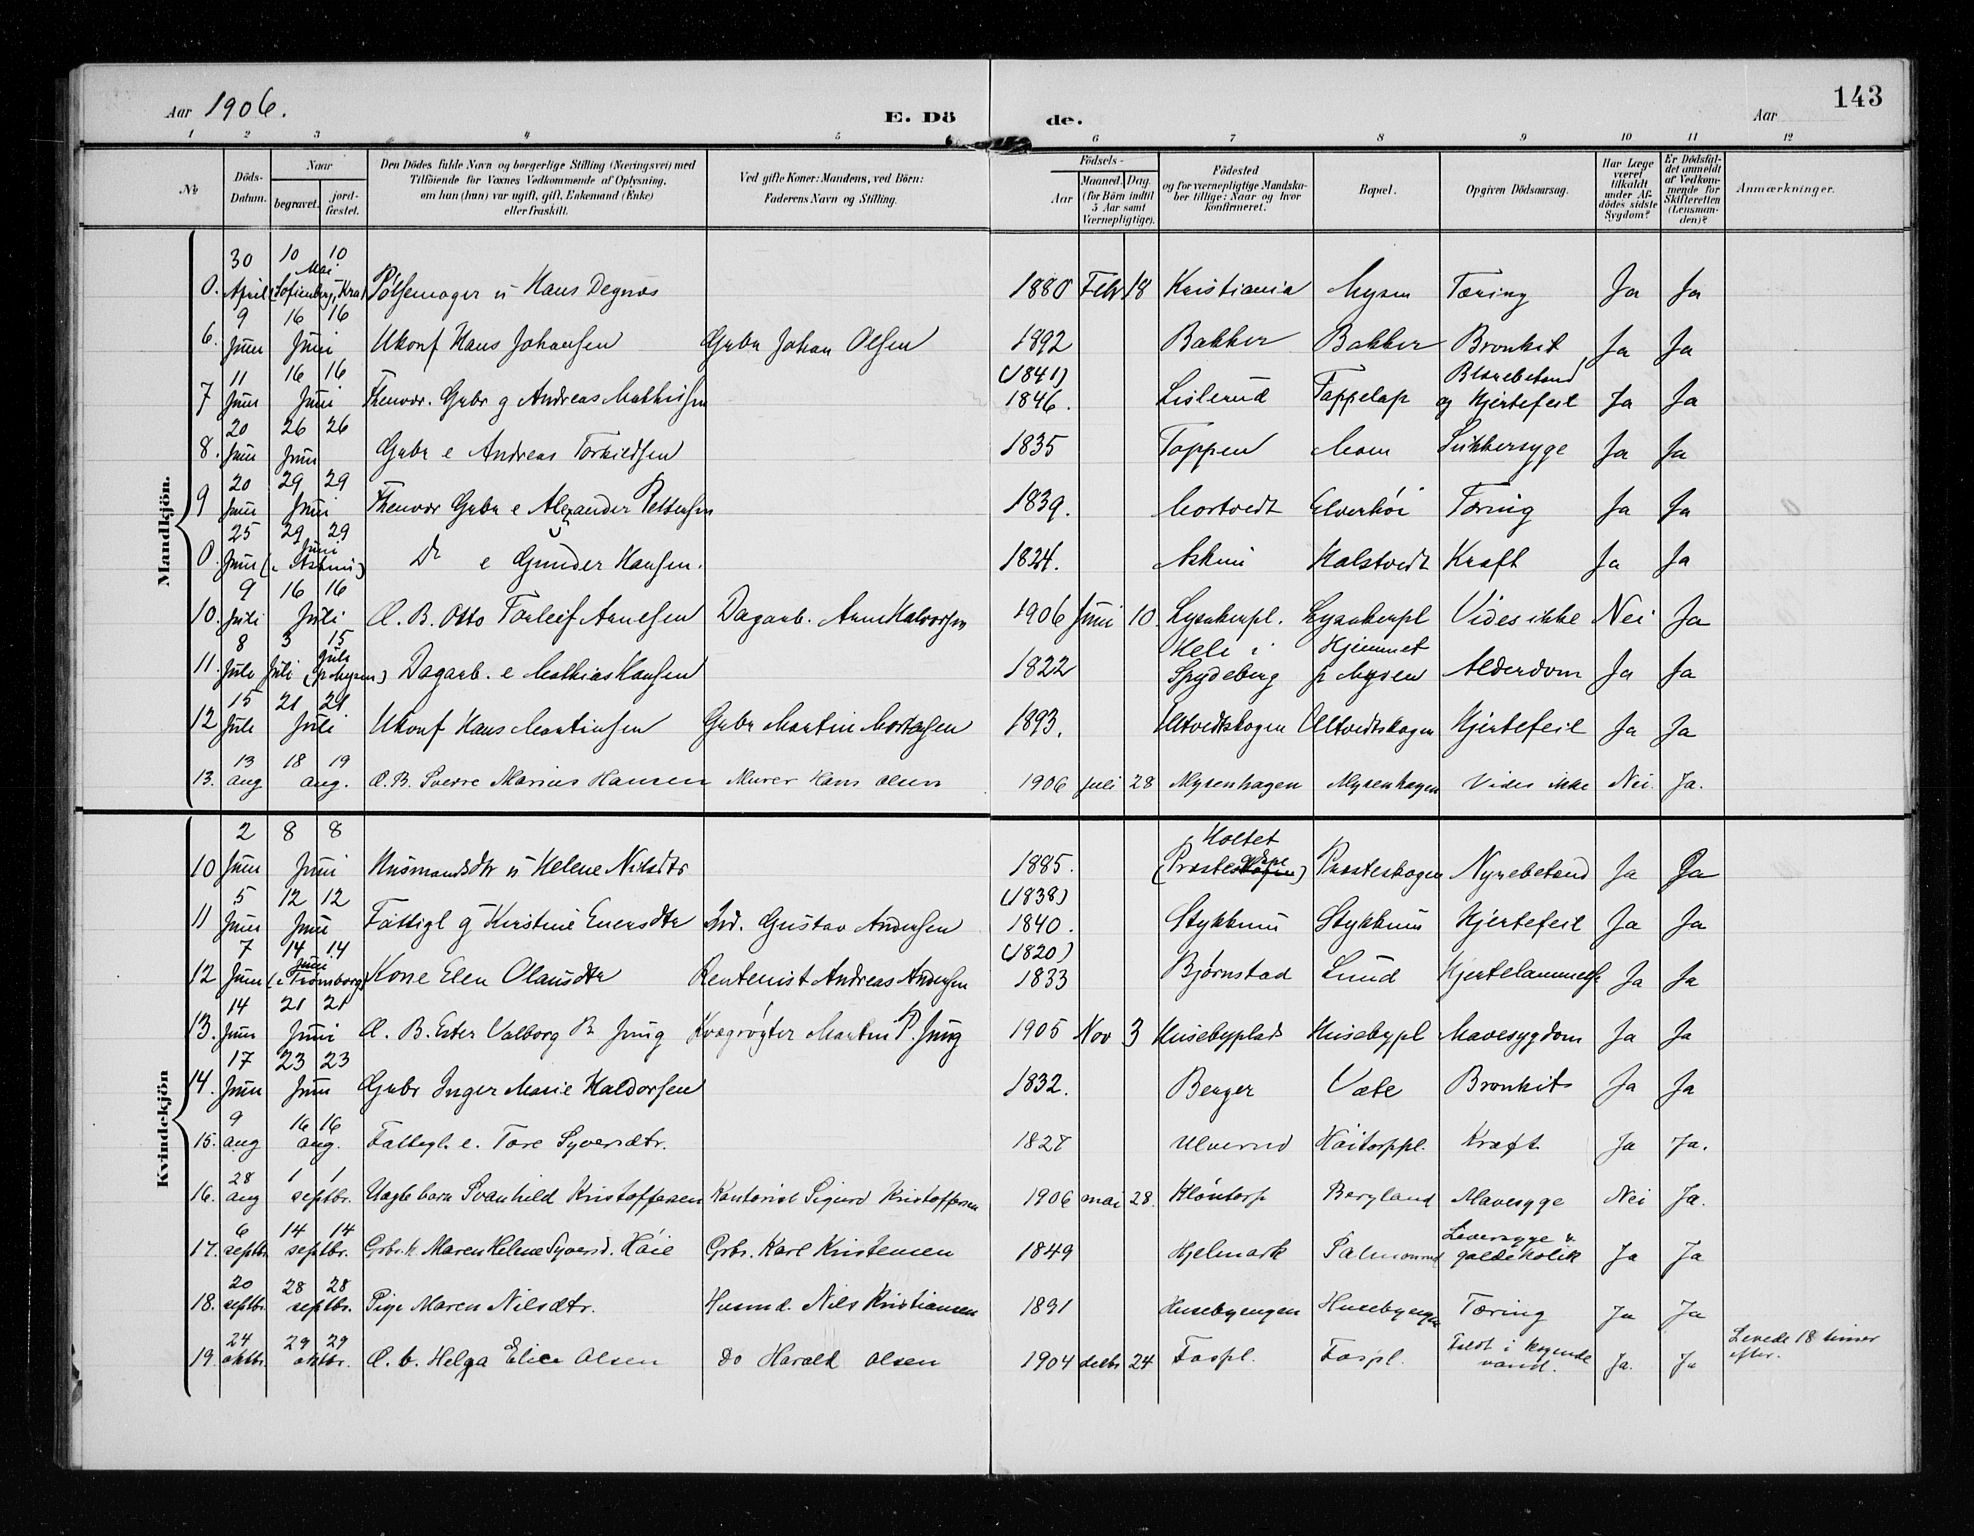 Aar 1906.
E. Dö
de.
Aar
143
1 2 3 4 5 6 7 8 9 10 11 12
№
Döds-Datum.
Naar
begravet.
jord-fæstet.
Den Dödes fulde Navn og borgerlige Stilling (Næringsvei) med
Tilföiende for Voxnes Vedkommende af Oplysning,
om han (hun) var ugift, gift, Enkemand (Enke)
eller fraskilt.
Ved gifte Koner: Mandens, ved Börn:
Faderens Navn og Stilling.
Födsels-
Aar
Maaned. Dag.
(for Börn indtil
5 Aar samt
Værnepligtige).
Födested
og for værnepligtige Mandska-
ber tillige: Naar og hvor
konfirmeret.
Bopæl.
Opgiven Dödsaarsag.
Har Læge
været
tilkaldt
under Af-
dödes sidste
Sygdom?
Er Dödsfal-
det anmeldt
af Vedkom-
mende for
Skifteretten
(Lensman-
den)?
Anmærkninger.
Mandkjön.
0. 30 April 10 10 Mai (Sofienberg, Kra) Pölsemager u Hans Degnæs 1880 Febr 18 Kristiania Mysen Tæring Ja Ja
6. 9 Juni 16 16 Juni Ukonf Hans Johansen Gaber Johan Olsen 1892 Bakker Bakker Bronkit Ja Ja
7 11 Juni 16 16 Juni Fhenvær. Gbr g Andreas Mathisen (1841) 1846. Lislerud Toppelap Blærebetænd og Hjertefeil Ja Ja
8. 20 Juni 26 26 Juni Gbr e Andreas Torkildsen 1835 Toppen Moen Sukkersyge Ja Ja
9 20 Juni 29 29 Juni Fhenvær Gbr e Alexander Pettersen 1839. Mortvedt Elverhöi Tæring Ja Ja
0. 25 Juni 29 29 Juni (i Askim) Do e Gunder Hansen. 1824. Askim Halstvedt Kræft Ja Ja
10. 9 Juli 16 16 Juli Æ. B. Otto Torleif Arnesen Dagarb. Arne Halvorsen 1906 Juni 10. Lysakerpl. Lysakerpl Vides ikke Nei Ja
11. 8 Juli 3 Juli 15 Juli (p Mysen) Dagarb. e Mathias Hansen 1822 Heli i Spydeberg Hjemmet p Mysen Alderdom Ja Ja
12 15 Juli 21 21 Juli Ukonf Hans Martinsen Gbr Martin Mortensen 1893. Ultvedtskogen Ultvedtskogen Hjertefeil Ja Ja
13. 13 aug 18 19 aug. Æ. B. Sverre Marius Hansen Murer Hans Olsen 1906 juli 28 Mysenhagen Mysenhagen Vides ikke Nei. Ja.
Kvindekjön
10 2 Juni 8 8 Juni Husmandsdtr u Helene Nilsdtr 1885. Holtet (Prestegdene) Præsteskogen Nyrebetænd Ja Ja
11 5 Juni 12 12 Juni Fattigl g Kirstine Enersdtr Ind. Gustav Andersen (1838) 1840. Stykkum Stykkum Hjertefeil Ja Ja
12 7 Juni 14 14 Juni (i Trömborg) Kone Elen Olausdtr Rentenist Andreas Andersen (1820) 1833 Bjørnstad Lund Hjertelammelse Ja Ja
13. 14 Juni 21 21 Juni Æ. B. Ester Valborg B Jung Kvægrøgter Martin P. Jung 1905 Nov 3 Husebyplads Husebypl Mavesygdom Ja Ja
14. 17 Juni 23 23 Juni Gbr Inger Marie Haldorsen 1832. Berger Væte Bronkits Ja Ja
15. 9 aug 16 16 aug. Fattigl. e. Tore Syversdtr. 1827 Ulverud Höitorppl. Kræft Ja Ja.
16. 28 aug 1 1 septbr. Uægte barn Svanhild Kristoffersen Kontorist Sigurd Kristoffersen 1906 mai 28. Klöntorp Bergland Mavesyge Nei Ja.
17. 6 septbr. 14 14 septbr. Grbr.k. Maren Helene Syversd. Höie Grbr. Karl Kristensen 1849 Hjelmark Salmonrud Leversyge & galdekolik Ja Ja
18. 20 septbr. 28 28 septbr. Pige Maren Nilsdtr. Husmd. Nils Kristiansen 1891 Husebyengen Husebyengen Tæring Ja Ja
19. 24 oktbr. 29 29 oktbr. Æ. b. Helga Elise Olsen Do Harald Olsen 1904 decbr 24 Fospl. Fospl. Faldt i kogende vand. Ja. Ja Levede 18 timer efter.